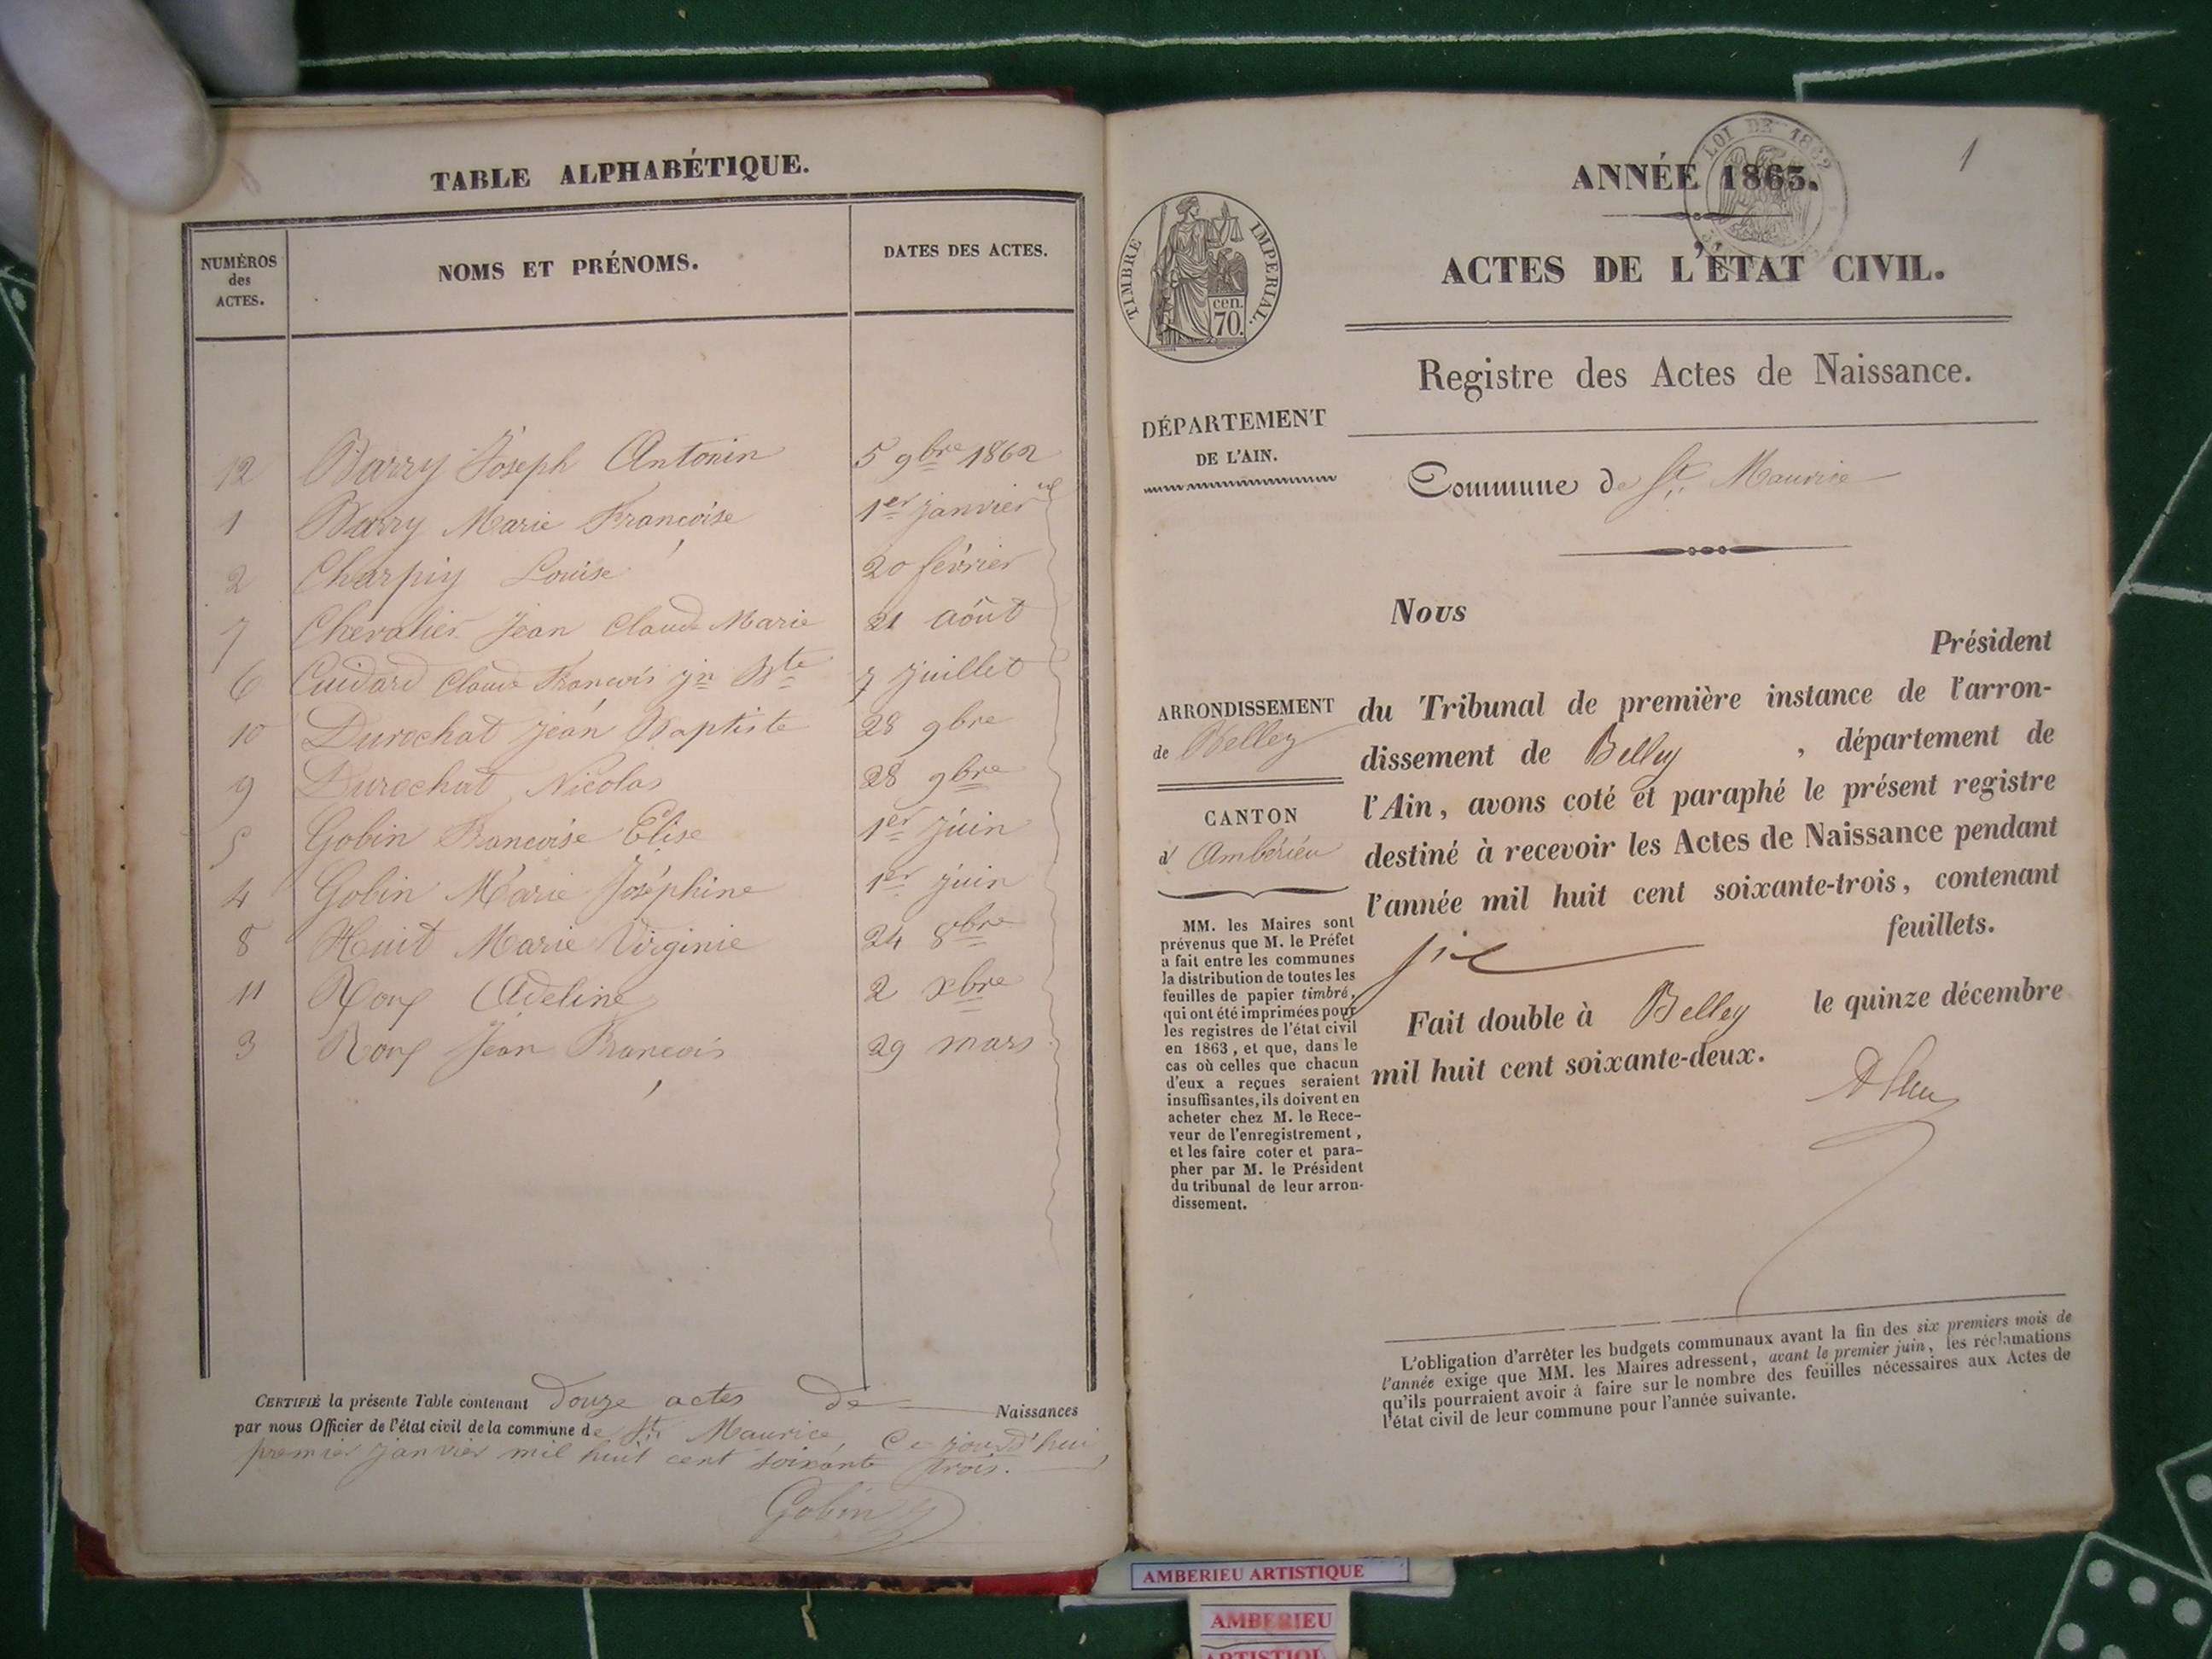 TABLE ALPHABÉTIQUE.
NUMÉROS des ACTES.
NOMS ET PRÉNOMS.
DATES DES ACTES.
12 Barry Joseph Antonin 5 9bre 1862
1 Barry Marie Françoise 1er janvier id
2 Charpiy Louise 20 février
7 Chevalier Jean Claude Marie 21 août
6 Cuidard Claude François Jn Bte 7 juillet
10 Durochat Jean Baptiste 28 9bre
9 Durochat Nicolas 28 9bre
5 Gobin Françoise Elise 1er juin
4 Gobin Marie Joséphine 1er juin
8 Huit Marie Virginie 24 8bre
11 Roux Adeline 2 xbre
3 Roux Jean François 29 mars
CERTIFIÉ la présente Table contenant Douze actes de Naissances
par nous Officier de l'état civil de la commune de St Maurice, Ce jourd'hui
premier janvier mil huit cent soixante trois.
Gobin
1
LOI DE 1862
ANNÉE 1863.
ACTES DE L'ÉTAT CIVIL.
TIMBRE IMPERIAL.
cen.
70.
Registre des Actes de Naissance.
DÉPARTEMENT
DE L'AIN.
Commune de St. Maurice
Nous
Président
du Tribunal de première instance de l'arron-
dissement de Belley, département de
l'Ain, avons coté et paraphé le présent registre
destiné à recevoir les Actes de Naissance pendant
l'année mil huit cent soixante-trois, contenant
six feuillets.
Fait double à Belley le quinze décembre
mil huit cent soixante-deux.
ARRONDISSEMENT
de Belley
CANTON
d' Ambérieu
MM. les Maires sont
prévenus que M. le Préfet
a fait entre les communes
la distribution de toutes les
feuilles de papier timbré,
qui ont été imprimées pour
les registres de l'état civil
en 1863, et que, dans le
cas où celles que chacun
d'eux a reçues seraient
insuffisantes, ils doivent en
acheter chez M. le Rece-
veur de l'enregistrement,
et les faire coter et para-
pher par M. le Président
du tribunal de leur arron-
dissement.
L'obligation d'arrêter les budgets communaux avant la fin des six premiers mois de
l'année exige que MM. les Maires adressent, avant le premier juin, les réclamations
qu'ils pourraient avoir à faire sur le nombre des feuilles nécessaires aux Actes de
l'état civil de leur commune pour l'année suivante.
AMBERIEU ARTISTIQUE
AMBERIEU
ARTISTIQUE